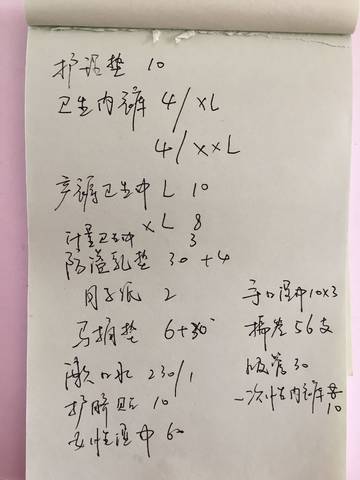 护理垫 10
卫生内裤 4/XL
4/XXL
产褥卫生巾 L 10
XL 8
计量卫生巾 3
防溢乳垫 30+4
月子纸 2
马桶垫 6+30
漱口水 230/1
护脐贴 10
女性湿巾 60
手口湿巾10×3
棉签56支
吸管30
一次性内裤
10